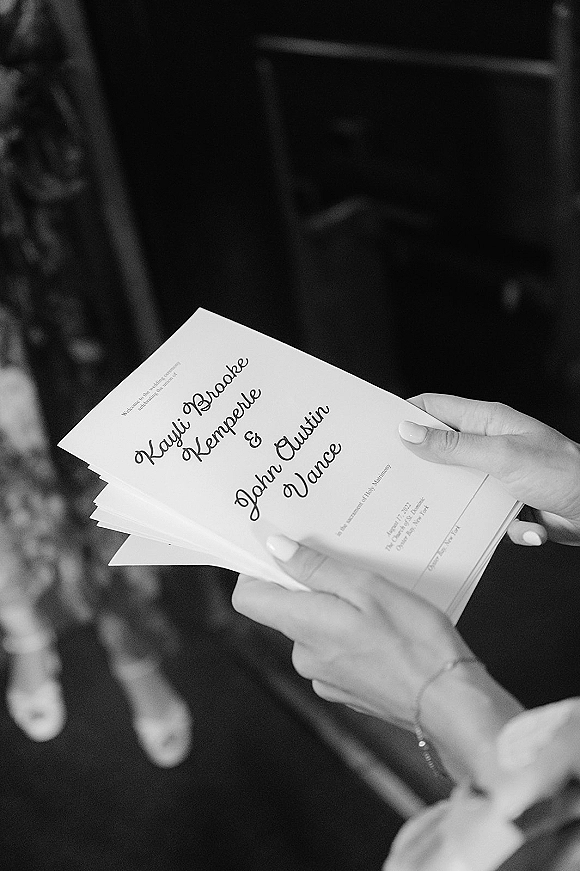 Welcome to the wedding ceremony
celebrating the union of
Kayli Brooke
Kemperle
&
John Austin
Vance
in the sacrament of Holy Matrimony
August 27, 2022
The Church of St. Dominic
Oyster Bay, New York
Oyster Bay, New York